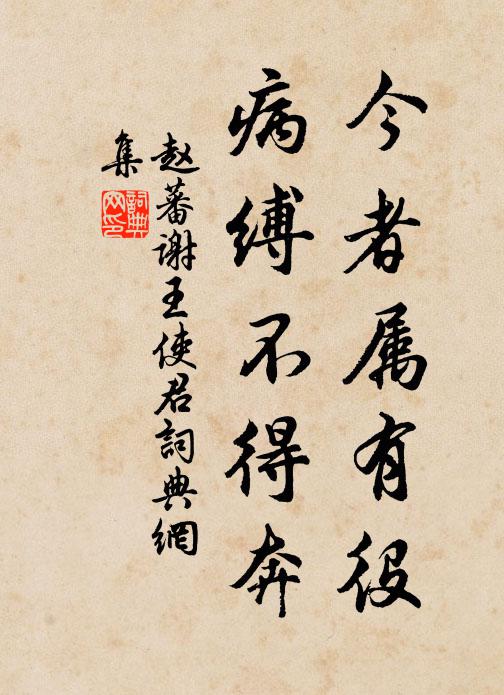 今者属有役
病缚不得奔
赵蕃谢王使君詞典網
集
詞典
网印